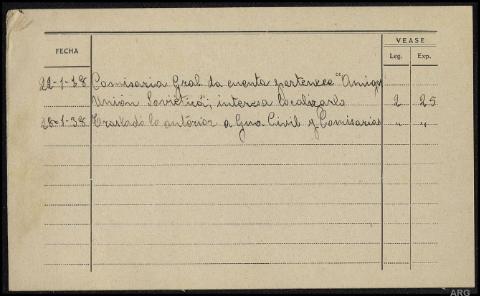 FECHA
VEASE
Leg. Exp.
22-1-38 Comisaria Gral. da cuenta pertenece "Amigos
Unión Soviética", interesa localizarle 2 25
28-1-38 Traslado lo anterior a Gno. Civil y Comisarias " "
ARG